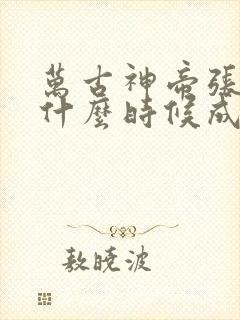 萬古神帝張
什麼時候成
敖曉波